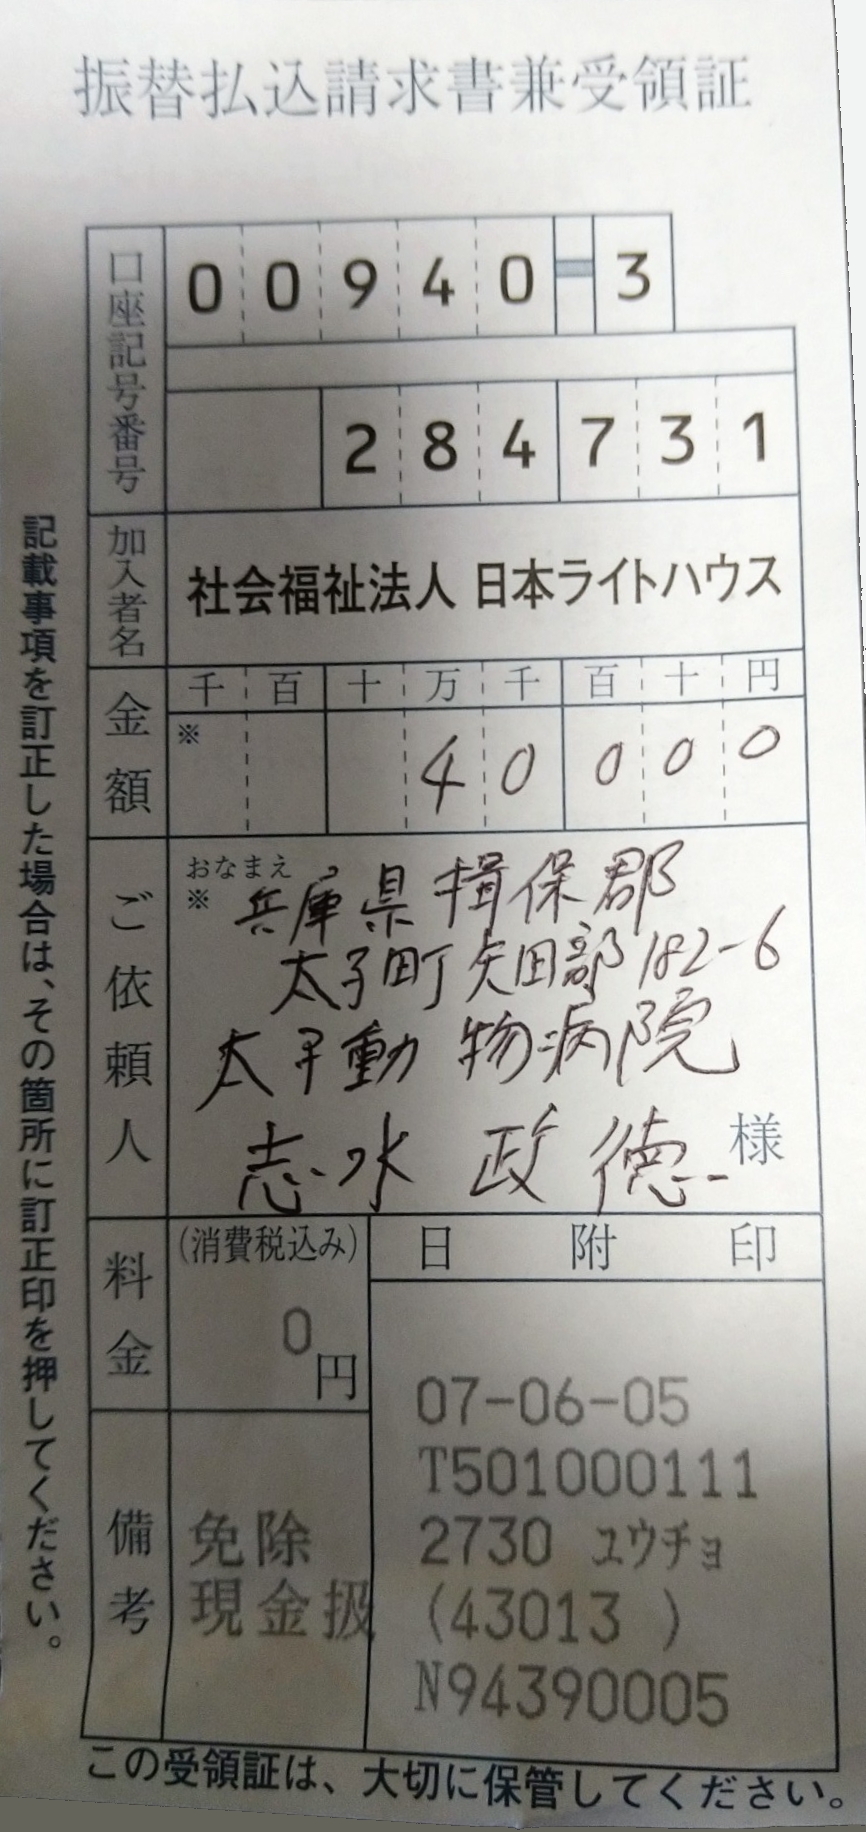 振替払込請求書兼受領証
口座記号番号
00940-3
284731
加入者名
社会福祉法人 日本ライトハウス
金額
千 百 十 万 千 百 十 円
※
40000
ご依頼人
おなまえ
※
兵庫県揖保郡
太子町矢田部182-6
太子動物病院
志水 政徳 様
料金
(消費税込み)
0円
日附印
07-06-05
T501000111
2730 ユウチョ
(43013 )
N94390005
備考
免除
現金扱
記載事項を訂正した場合は、その箇所に訂正印を押してください。
この受領証は、大切に保管してください。